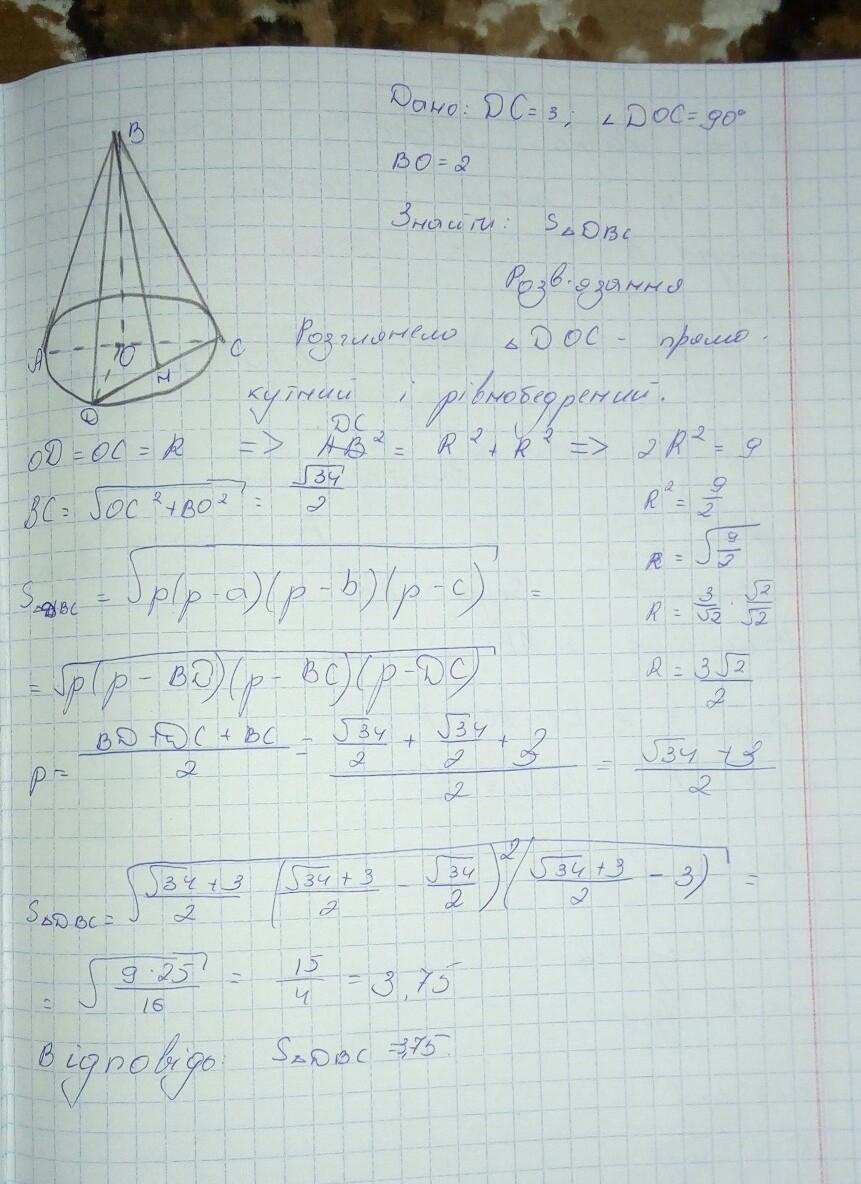 Дано: DC = 3; ∠DOC = 90°
BO = 2
Знайти: S△DBC
Розв'язання
Розглянемо △DOC - прямо-
кутний і рівнобедрений.
B
A
O
C
H
D
OD = OC = R => DC² = R² + R² => 2R² = 9
BC = √(OC² + BO²) = √34/2
R² = 9/2
R = √(9/2)
R = 3/√2 · √2/√2
R = 3√2/2
S△DBC = √(p(p-a)(p-b)(p-c)) =
= √(p(p-BD)(p-BC)(p-DC))
p = (BD + DC + BC)/2 = (√34/2 + √34/2 + 3)/2 = (√34 + 3)/2
S△DBC = √((√34 + 3)/2 ((√34 + 3)/2 - √34/2)² ((√34 + 3)/2 - 3)) =
= √(9·25/16) = 15/4 = 3,75
Відповідь: S△DBC = 3,75.